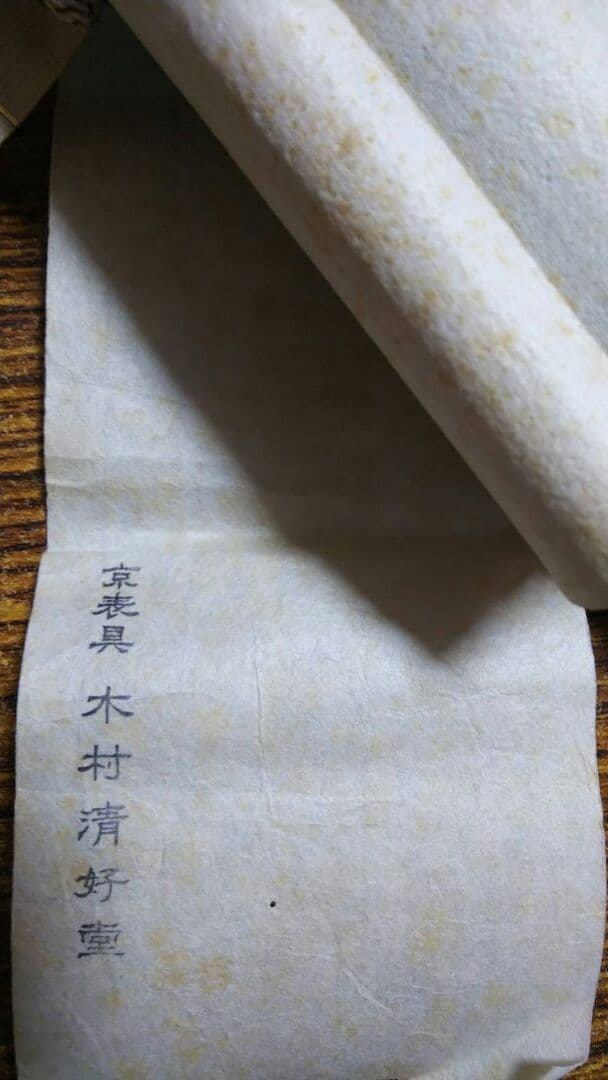 京表具 木村清好堂